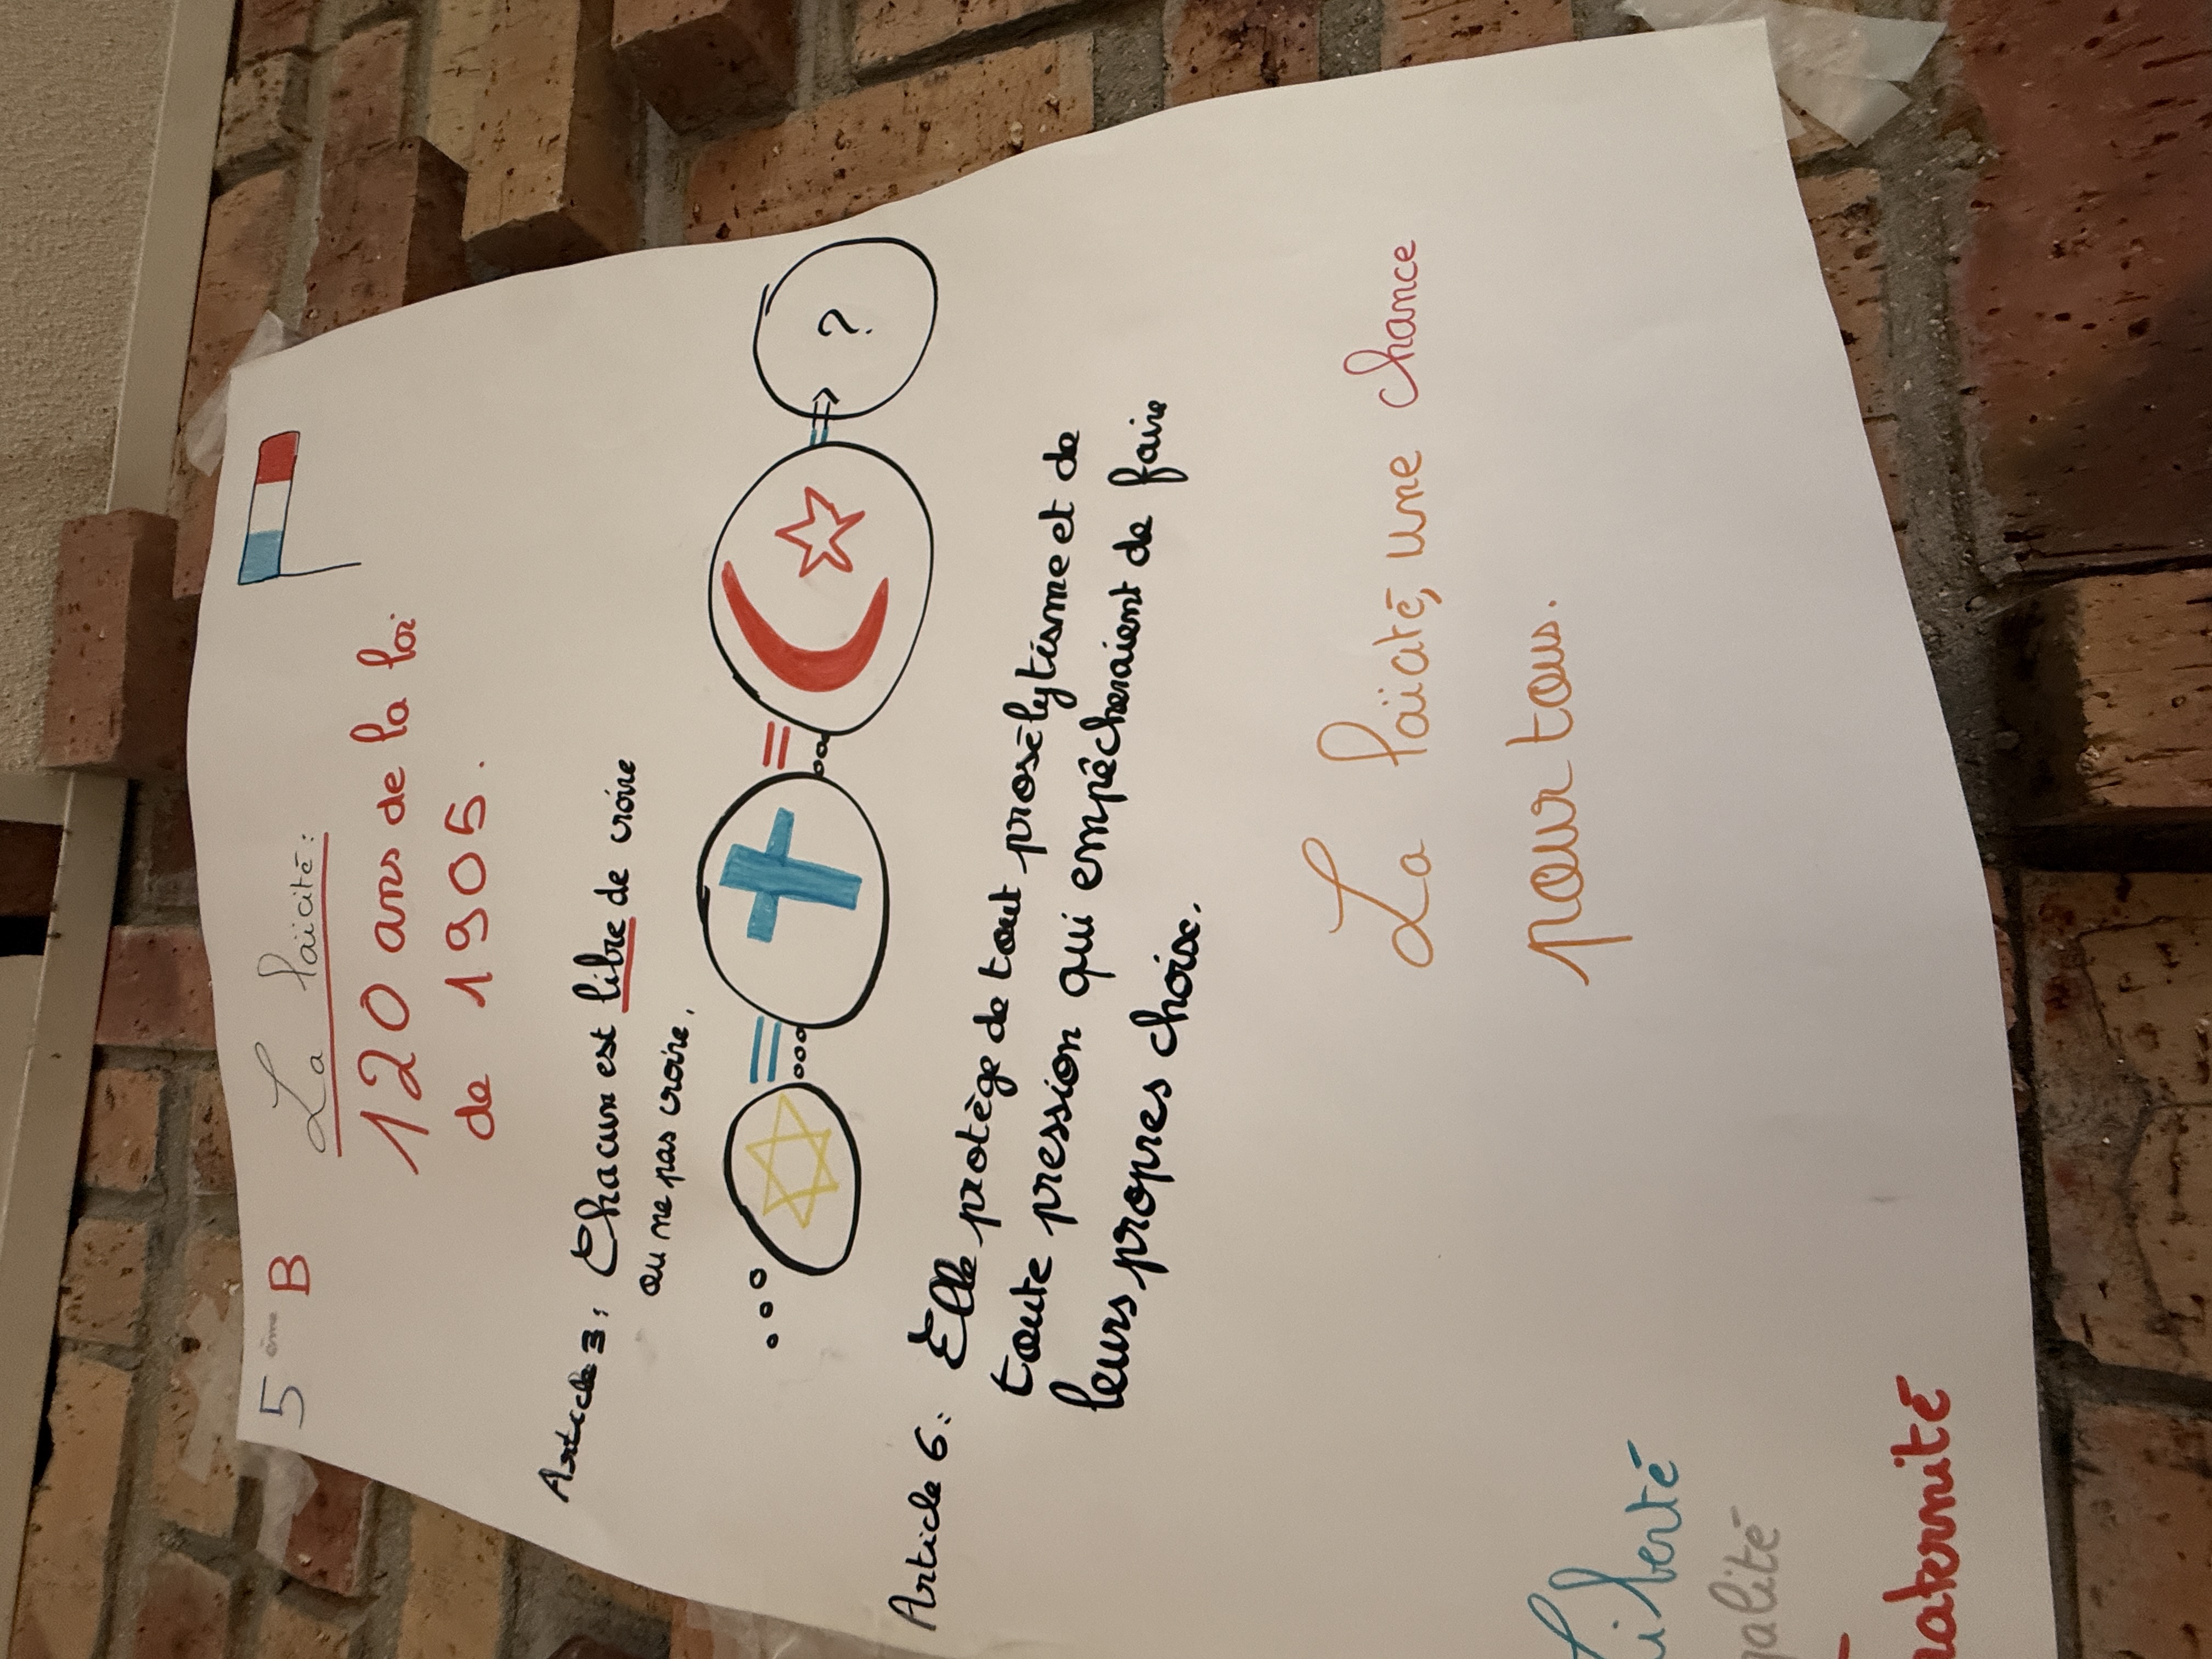 5ème B
La laïcité:
120 ans de la loi
de 1905.
Article 3: Chacun est libre de croire
ou ne pas croire.
?
Article 6: Elle protège de tout prosélytisme et de
toute pression qui empêcheraient de faire
leurs propres choix.
La laicité, une chance
pour tous.
Liberté
galité
raternité